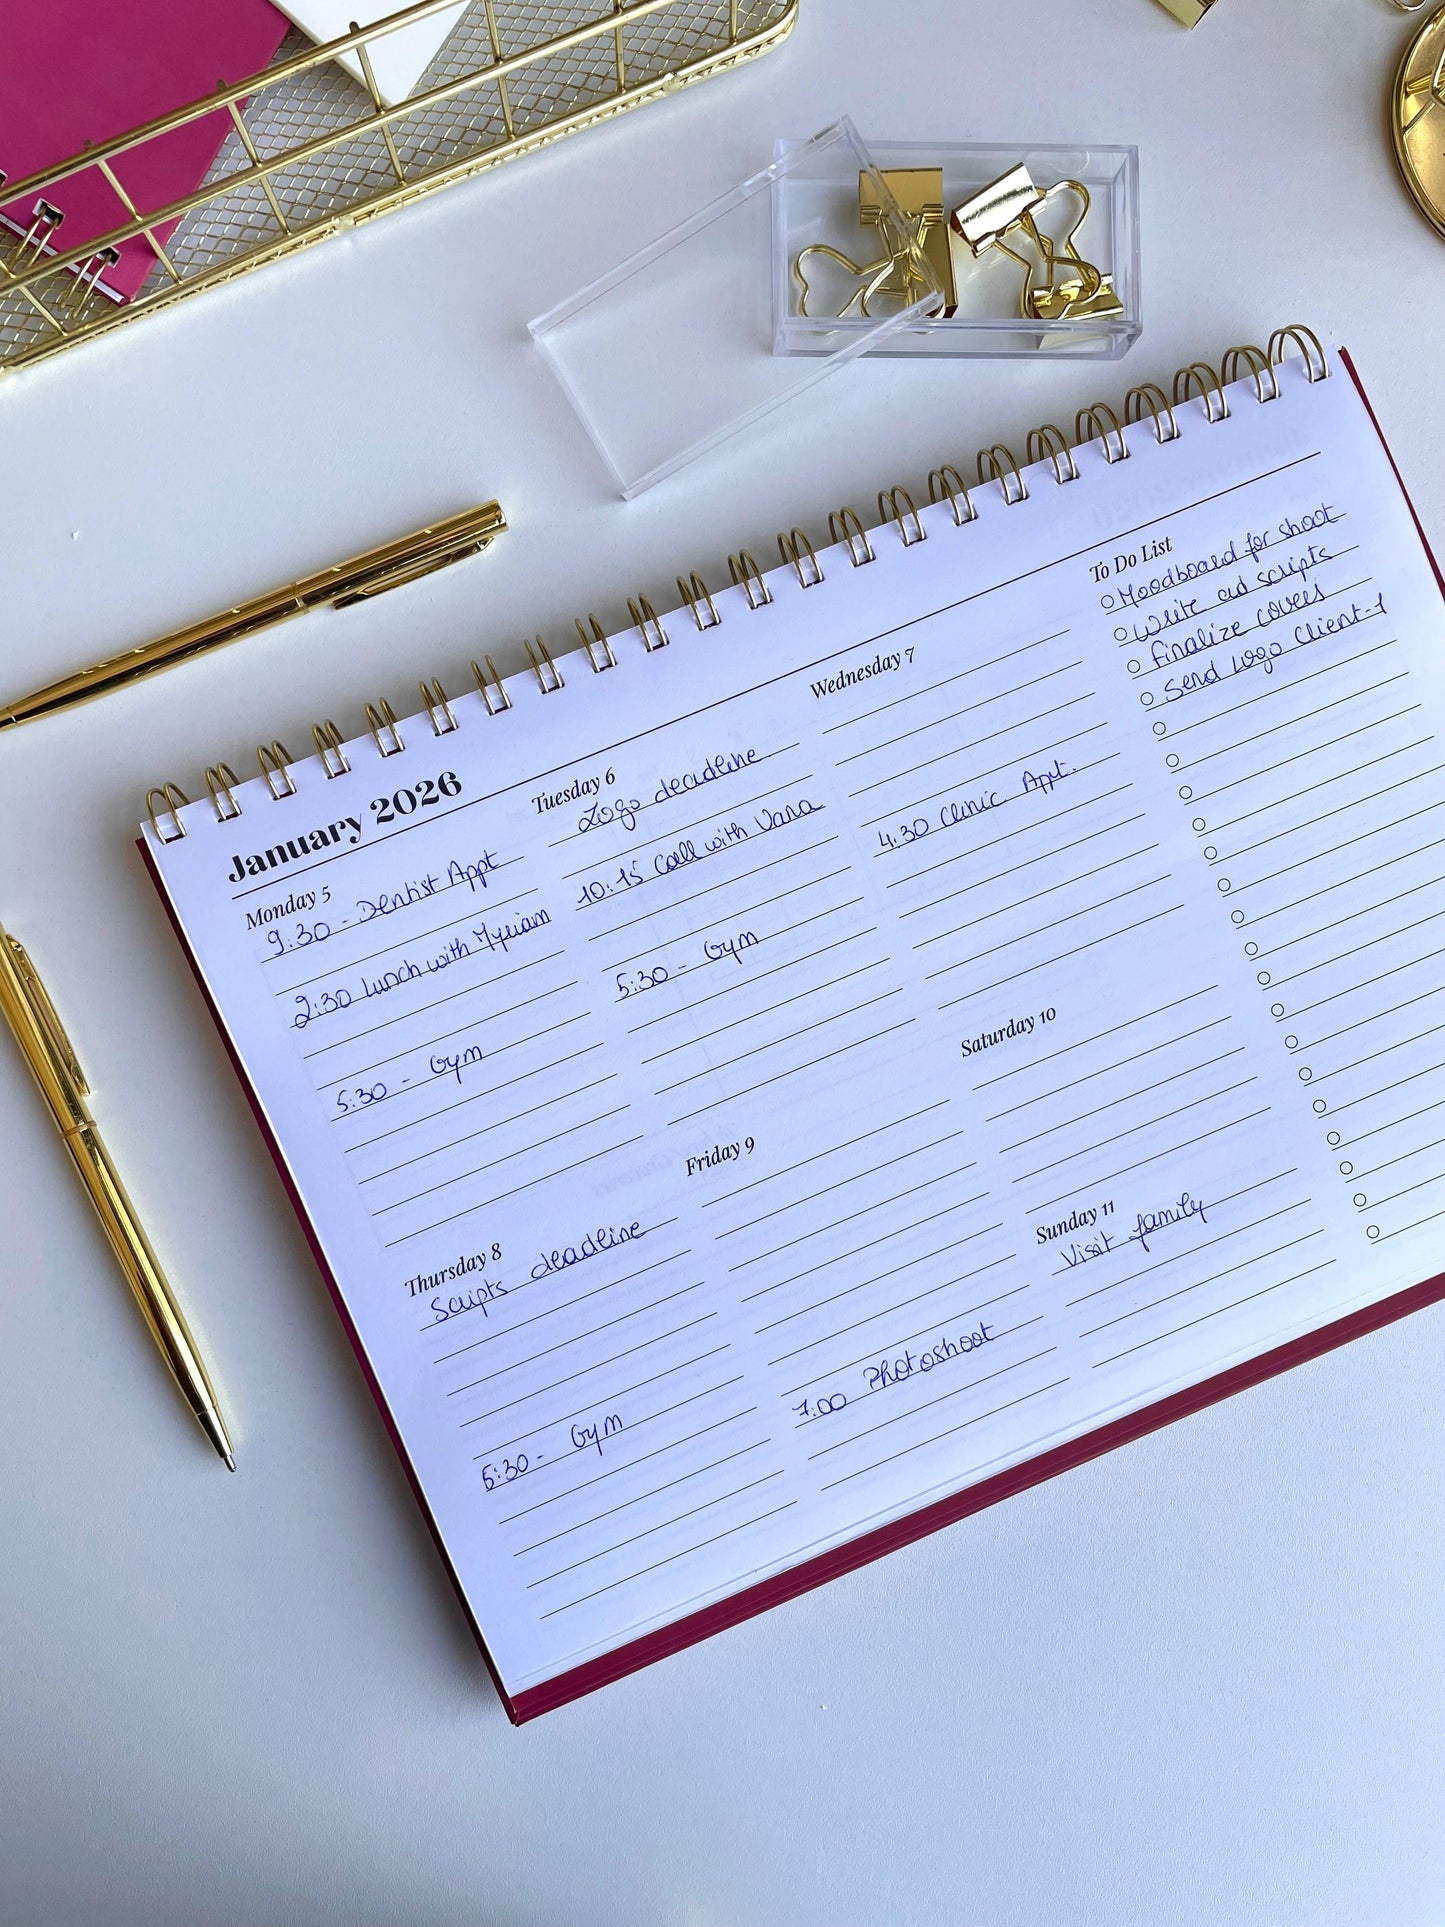 January 2026
Monday 5
9:30 - Dentist Appt
2:30 Lunch with Myriam
5:30 - Gym
Tuesday 6
Logo deadline
10:15 Call with Vana
5:30 - Gym
Wednesday 7
4:30 Clinic Appt.
Thursday 8
Scripts deadline
5:30 - Gym
Friday 9
7:00 Photoshoot
Saturday 10
Sunday 11
Visit family
To Do List
Moodboard for shoot
Write ad scripts
Finalize covers
Send Logo Client-1